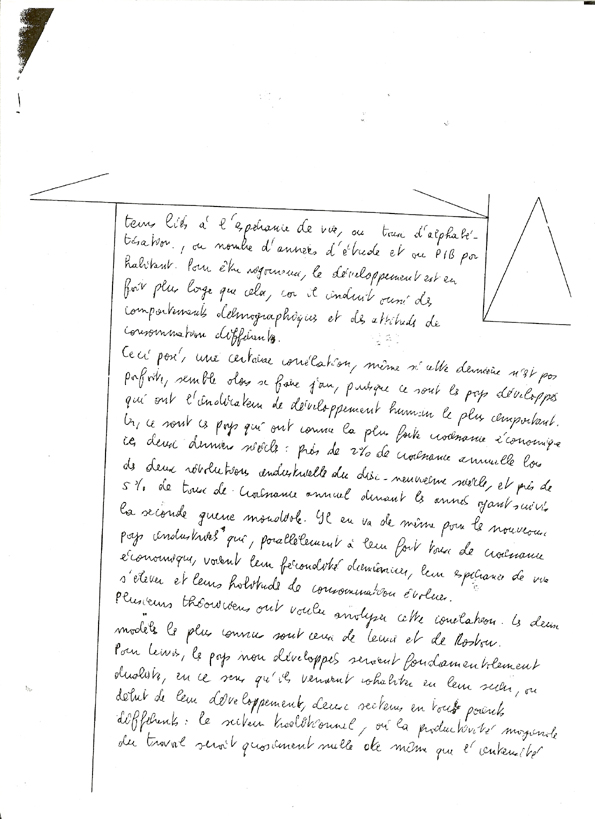 teurs liés à l'espérance de vie, au taux d'alphabé-
tisation, au nombre d'années d'étude et au PIB par
habitant. Pour être rigoureux, le développement est en
fait plus large que cela, car il induit aussi des
comportements démographiques et des attitudes de
consommation différents.
Ceci posé, une certaine corrélation, même si cette dernière n'est pas
parfaite, semble alors se faire jour, puisque ce sont les pays développés
qui ont l'indicateur de développement humain le plus important.
Or, ce sont ces pays qui ont connu la plus forte croissance économique
ces deux derniers siècles : près de 2% de croissance annuelle lors
de deux révolutions industrielles du dix-neuvième siècle, et près de
5% de taux de croissance annuel durant les années ayant suivi
la seconde guerre mondiale. Il en va de même pour les nouveaux
pays industriels qui, parallèlement à leur fort taux de croissance
économique, voient leur fécondité diminuer, leur espérance de vie
s'élever et leurs habitudes de consommation évoluer.
Plusieurs théoriciens ont voulu analyser cette corrélation. Les deux
modèles les plus connus sont ceux de Lewis et de Rostow.
Pour Lewis, les pays non développés seraient fondamentalement
dualistes, en ce sens qu'ils verraient cohabiter en leur sein, au
début de leur développement, deux secteurs en tous points
différents : le secteur traditionnel, où la productivité marginale
du travail serait quasiment nulle de même que l'intensité